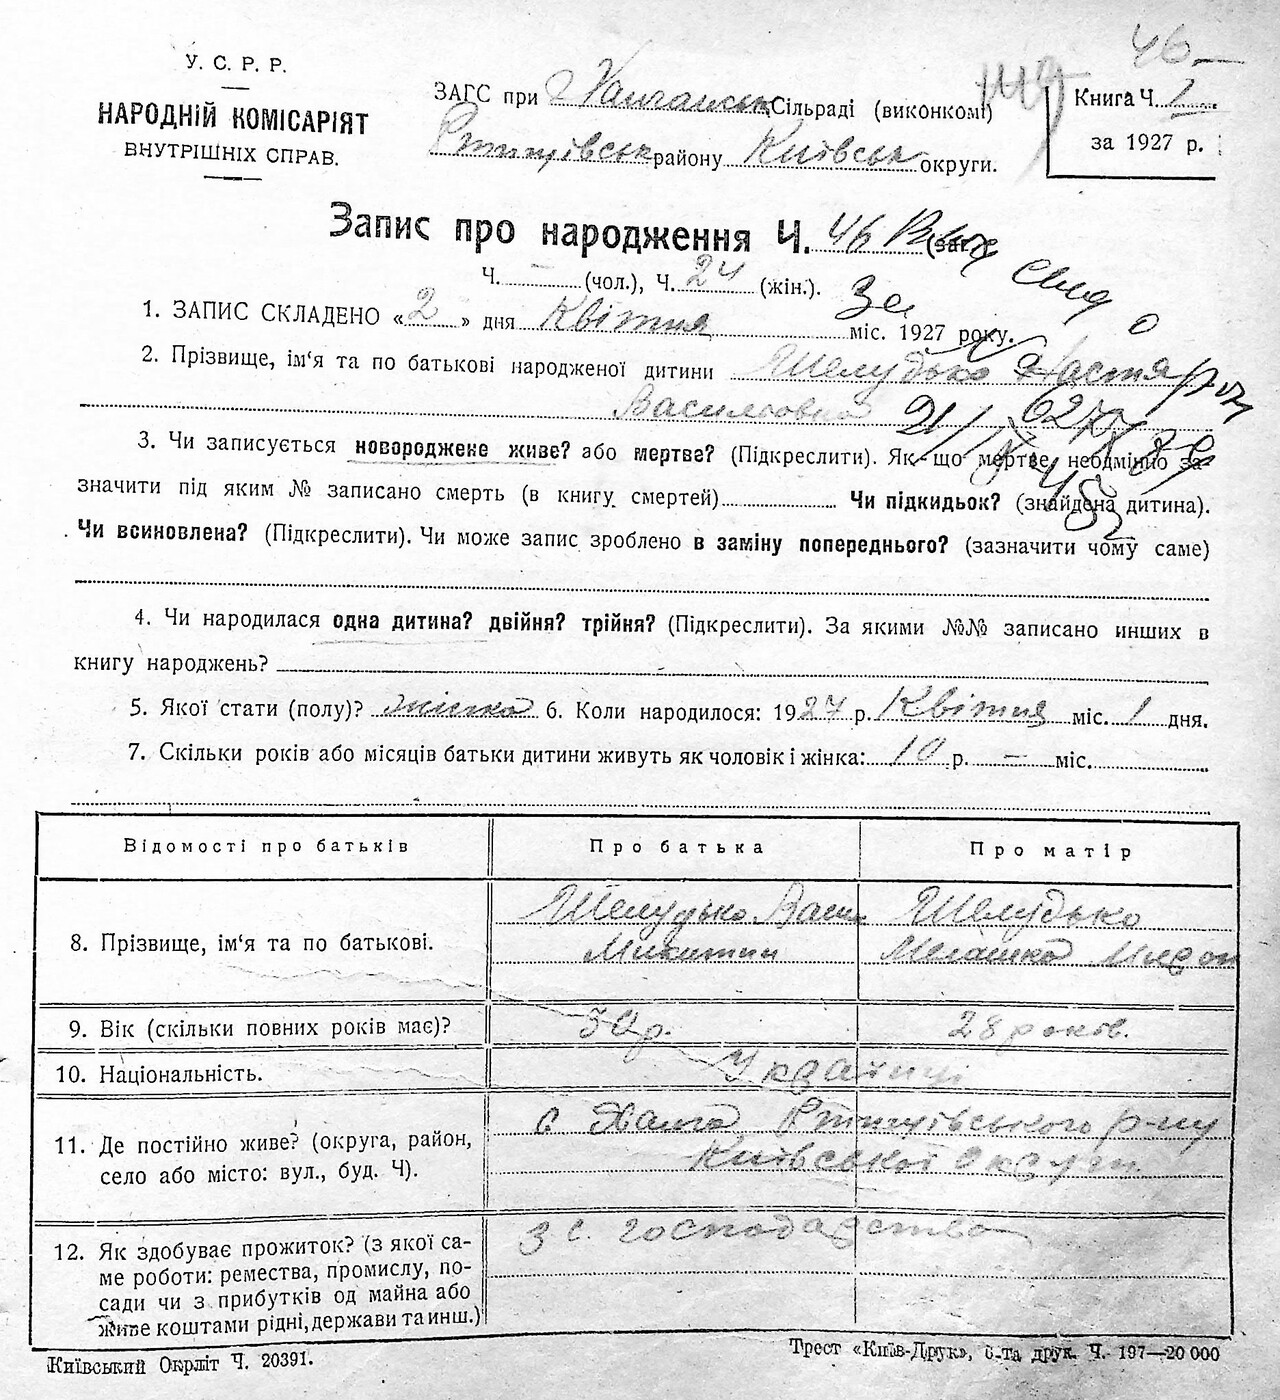 46
У. С. Р. Р.
НАРОДНІЙ КОМІСАРІЯТ
ВНУТРІШНІХ СПРАВ.
ЗАГС при Сільраді (виконкомі)
району Київськ округи.
Книга Ч. 1
за 1927 р.
Запис про народження Ч. 46 (заг.)
Ч. — (чол.), Ч. 24 (жін.).
1. ЗАПИС СКЛАДЕНО «2» дня Квітня міс. 1927 року.
2. Прізвище, ім'я та по батькові народженої дитини Шелудько Настя
Василівна
3. Чи записується новороджене живе? або мертве? (Підкреслити). Як-що мертве, неодмінно за-
значити під яким № записано смерть (в книгу смертей) Чи підкидьок? (знайдена дитина).
Чи всиновлена? (Підкреслити). Чи може запис зроблено в заміну попереднього? (зазначити чому саме)
4. Чи народилася одна дитина? двійня? трійня? (Підкреслити). За якими №№ записано инших в
книгу народжень?
5. Якої стати (полу)? жіноча 6. Коли народилося: 1927 р. Квітня міс. 1 дня.
7. Скільки років або місяців батьки дитини живуть як чоловік і жінка: 10 р. — міс.
Відомості про батьків
Про батька
Про матір
8. Прізвище, ім'я та по батькові.
Шелудько Васил
Микитин
Шелудько
Мелашка Мирон
9. Вік (скільки повних років має)?
30 р.
28 років.
10. Національність.
Українці
11. Де постійно живе? (округа, район,
село або місто: вул., буд. Ч).
с р-ну
Київської округи
12. Як здобуває прожиток? (з якої са-
ме роботи: ремества, промислу, по-
сади чи з прибутків од майна або
живе коштами рідні, держави та инш.)
З с. господарства
Київський Окрліт Ч. 20391.
Трест «Київ-Друк», 6-та друк. Ч. 197—20 000